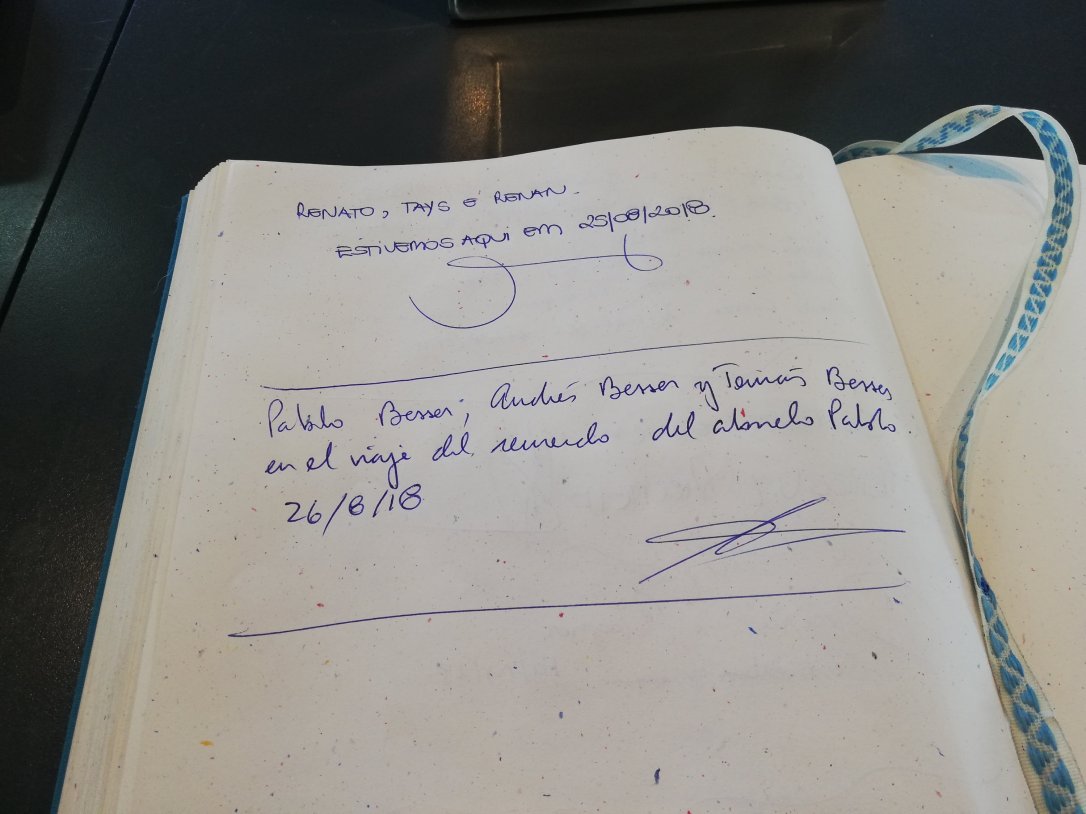 RENATO, TAYS E RENAN.
ESTIVEMOS AQUI EM 25/08/2018.
Pablo Besser; Andrés Besser y Tomás Besser
en el viaje del recuerdo del abuelo Pablo.
26/8/18